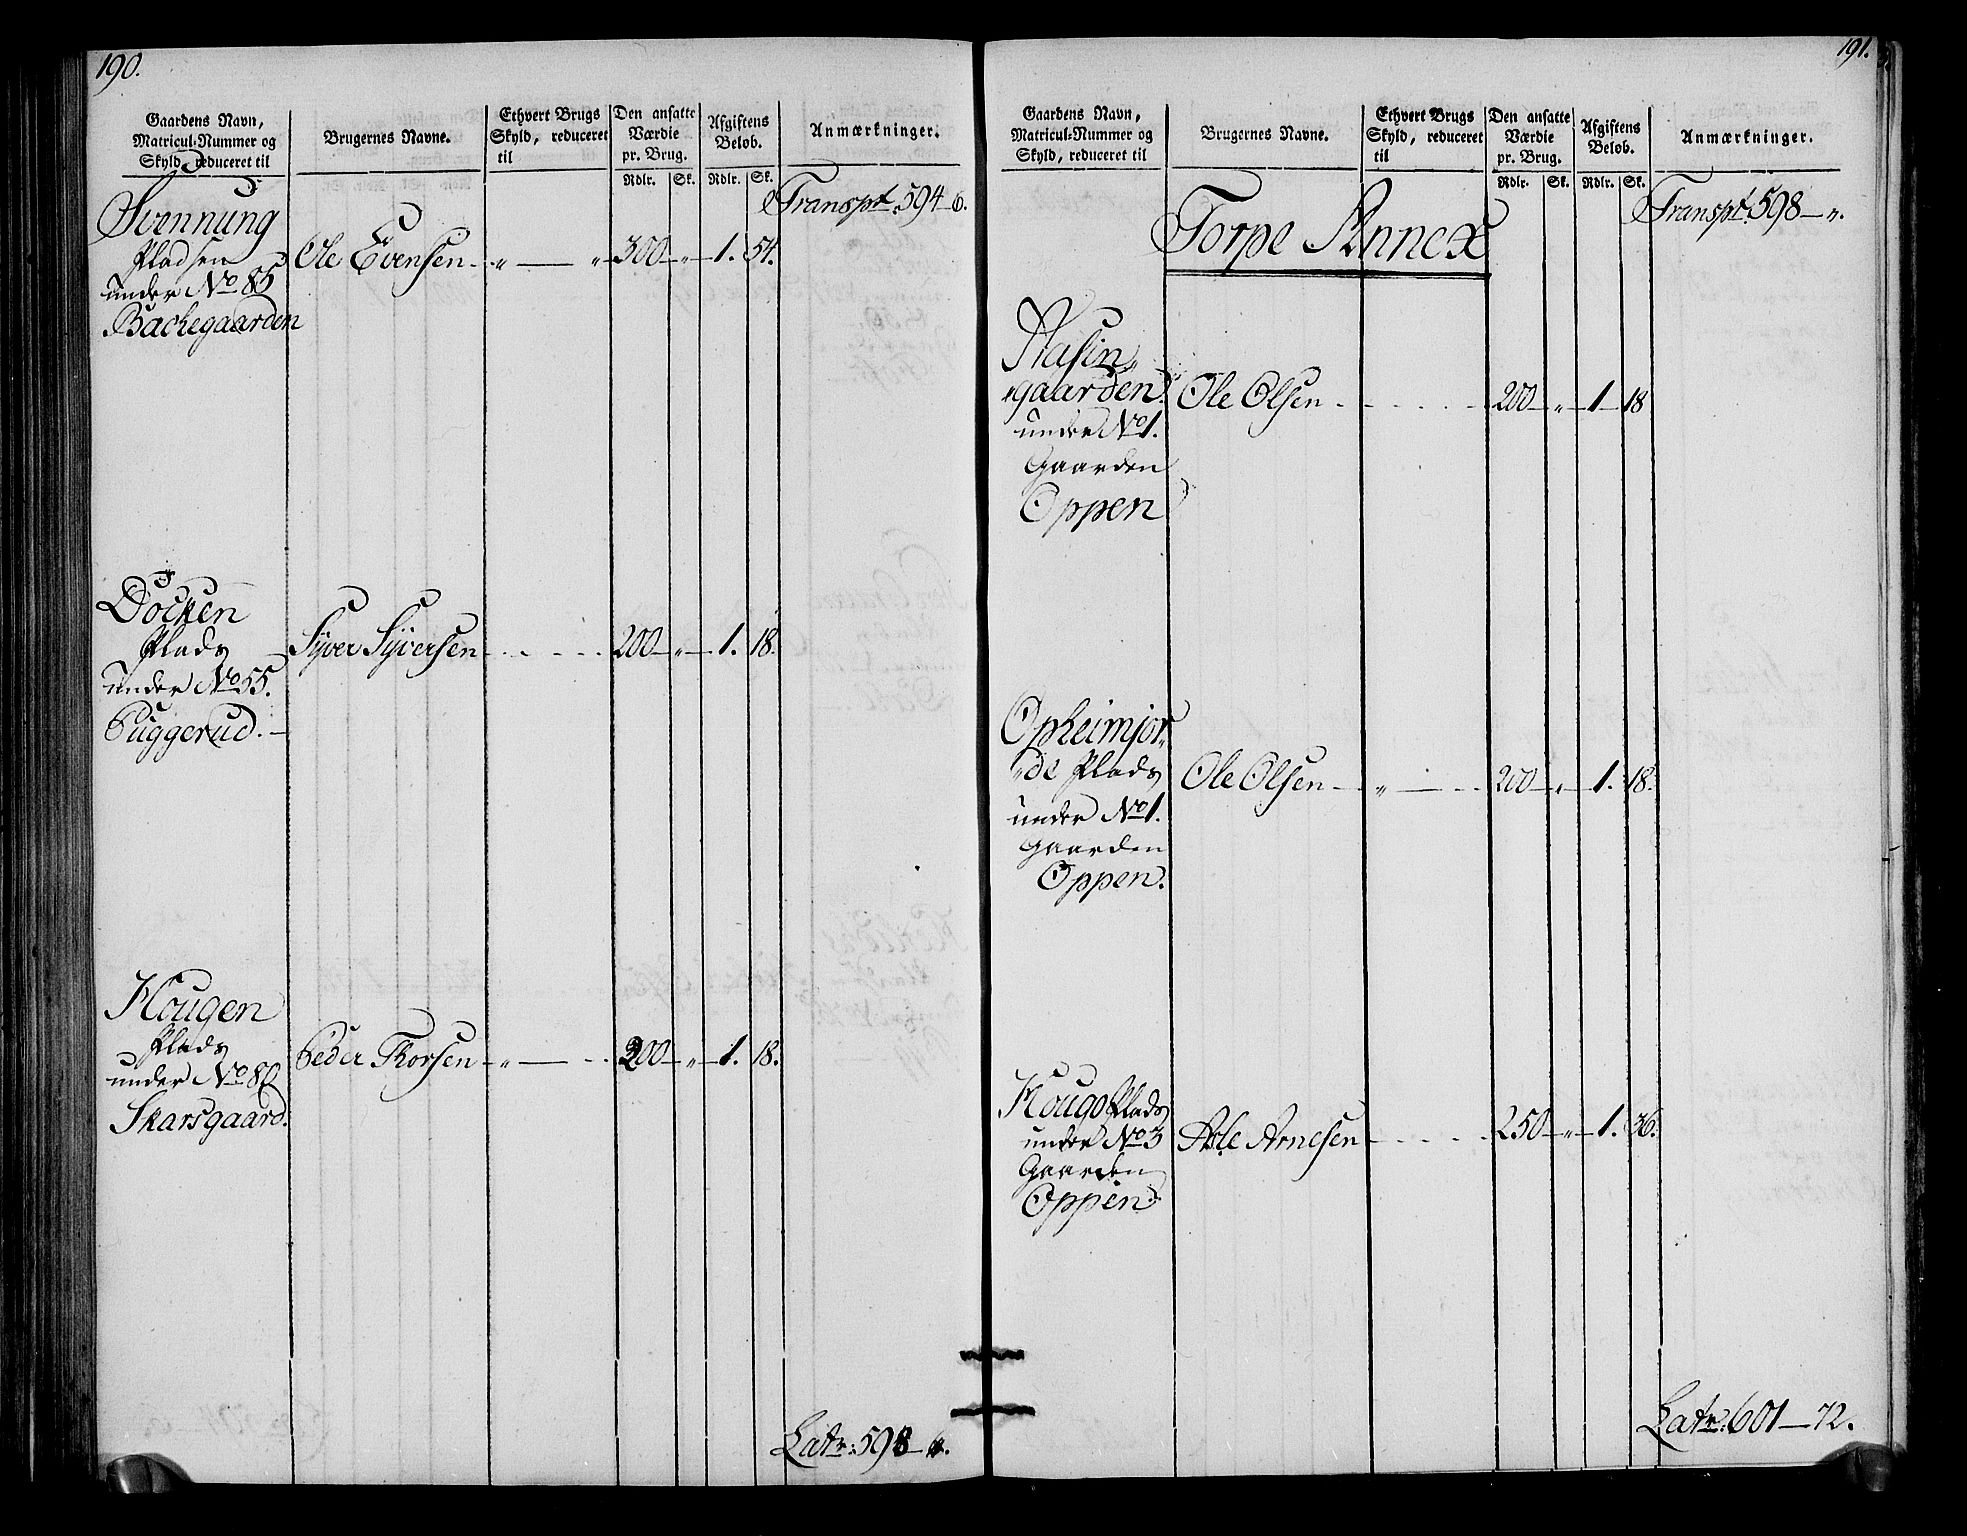 190.
Gaardens Navn,
Matricul-Nummer og
Skyld, reduceret til
Brugernes Navne.
Ethvert Brugs
Skyld, reduceret
til
Den ansatte
Værdie
pr. Brug.
Afgiftens
Beløb.
Anmærkninger.
Rdlr. Sk. Rdlr. Sk.
Transpt. 594 - 6.
Svennung
Pladsen
under No 85
Backegaarden
Ole Evensen - „ — „ 300 - „ - 1. 54.
Docken
Plads
under No 55.
Puggerud. -
Syver Syversen - - - - 200 - „ - 1. 18.
Hougen
Plads
under No 80
Skarsgaard.
Peder Thorsen - „ — - 200 - „ - 1. 18.
Latr: 598 - „.
191.
Gaardens Navn,
Matricul-Nummer og
Skyld, reduceret til
Brugernes Navne.
Ethvert Brugs
Skyld, reduceret
til
Den ansatte
Værdie
pr. Brug.
Afgiftens
Beløb.
Anmærkninger.
Rdlr. Sk. Rdlr. Sk.
Transpt. 598 - „.
Torpe Annex
Aasin„
„gaarden
under No 1.
Gaarden
Oppen
Ole Olsen - - - - - 200 - „ - 1 - 18
Opheimjor„
„de Plads
under No 1.
Gaarden
Oppen.
Ole Olsen - - „ — - - 200 - „ - 1. 18.
Hougo Plads
under No 3
Gaarden
Oppen.
Asle Arnesen - - - - - 250 - „ - 1. 36.
Latr: 601 - 72.